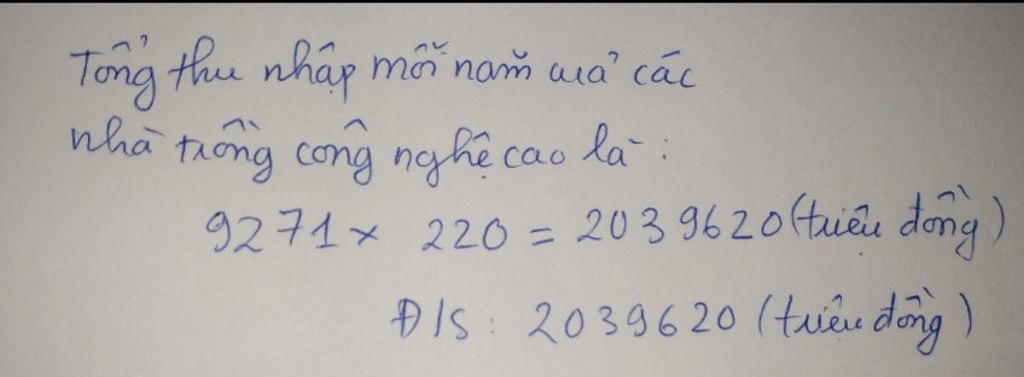 Tổng thu nhập mỗi năm của các
nhà trồng công nghệ cao là:
9271 × 220 = 2039620 (triệu đồng)
Đ/S: 2039620 (triệu đồng)